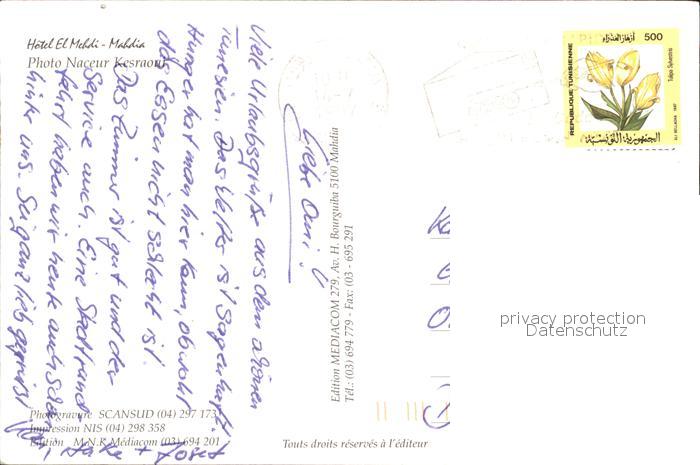 Hôtel El Mehdi - Mahdia
Photo Naceur Kesraoui
Liebe Omi!
Viele Urlaubsgrüße aus dem schönen
Tunesien. Das Wetter ist sagenhaft.
Hunger hat man hier kaum, obwohl
das Essen nicht schlecht ist.
Das Zimmer ist gut und der
Service auch. Eine Stadtrund-
fahrt haben wir heute auch schon
hinter uns. Sei ganz lieb gegrüßt
+ Josef
Photogravure SCANSUD (04) 297 173
Impression NIS (04) 298 358
Edition M.N.K Médiacom (03) 694 201
Edition MEDIACOM 279, Av. H. Bourguiba 5100 Mahdia
Tél.: (03) 694 779 - Fax: (03) - 695 291
Touts droits réservés à l'éditeur
500
REPUBLIQUE TUNISIENNE
Tulipa Sylvestris
الجمهورية التونسية
privacy protection
Datenschutz